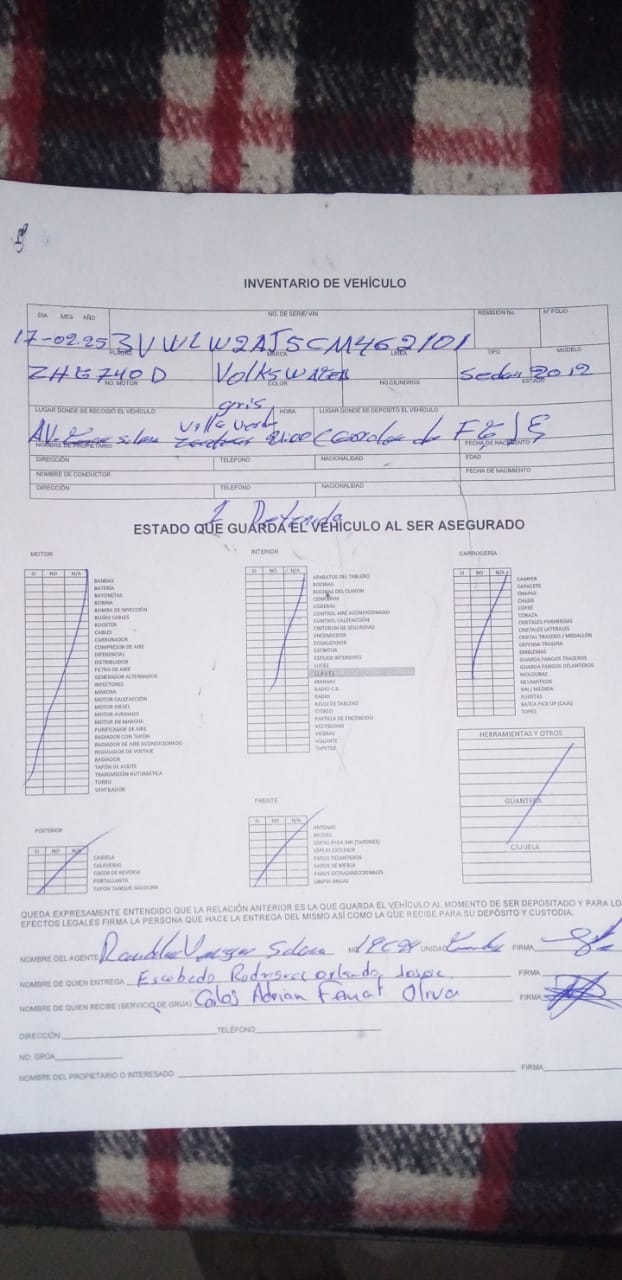 INVENTARIO DE VEHÍCULO
DIA MES AÑO NO. DE SERIE/VIN REMISION No. N° FOLIO
17-02-25 3VWLW2AJ5CM462101
PLACAS MARCA LINEA TIPO MODELO
ZHG740D Volkswagen Sedan 2012
NO. MOTOR COLOR NO.CILINDROS ESTADO
gris
LUGAR DONDE SE RECOGIÓ EL VEHÍCULO HORA LUGAR DONDE SE DEPOSITÓ EL VEHÍCULO
Villa Verde
AV.
NOMBRE DE PROPIETARIO FECHA DE NACIMIENTO
DIRECCIÓN TELEFONO NACIONALIDAD EDAD
NOMBRE DE CONDUCTOR FECHA DE NACIMIENTO
DIRECCIÓN TELEFONO NACIONALIDAD
ESTADO QUE GUARDA EL VEHÍCULO AL SER ASEGURADO
MOTOR
SI NO N/A
BANDAS
BATERÍA
BAYONETAS
BOBINA
BOMBA DE INYECCIÓN
BUJÍAS CABLES
BOOSTER
CABLES
CARBURADOR
COMPRESOR DE AIRE
DIFERENCIAL
DISTRIBUIDOR
FILTRO DE AIRE
GENERADOR ALTERNADOR
INYECTORES
MARCHA
MOTOR CALEFACCIÓN
MOTOR DIESEL
MOTOR AVERIADO
MOTOR EN MARCHA
PURIFICADOR DE AIRE
RADIADOR CON TAPÓN
RADIADOR DE AIRE ACONDICIONADO
REGULADOR DE VOLTAJE
RADIADOR
TAPÓN DE ACEITE
TRANSMISIÓN AUTOMÁTICA
TURBO
VENTILADOR
INTERIOR
SI NO N/A
APARATOS DEL TABLERO
BOCINAS
BOCINAS DEL CLAXON
CENICEROS
CODERAS
CONTROL AIRE ACONDICIONADO
CONTROL CALEFACCIÓN
CINTURON DE SEGURIDAD
ENCENDEDOR
ECUALIZADOR
EXTINTOR
ESPEJOS INTERIORES
LUCES
LLAVES
MANIJAS
RADIO C.B
RADIO
RELOJ DE TABLERO
STEREO
PASTILLA DE ENCENDIDO
VESTIDURAS
VISERAS
VOLANTE
TAPETES
CARROCERÍA
SI NO N/A
CAMPER
CARACETE
CHAPAS
CHASIS
COFRE
CORAZA
CRISTALES PARABRISAS
CRISTALES LATERALES
CRISTAL TRASERO / MEDALLÓN
DEFENSA TRASERA
EMBLEMAS
GUARDA FANGOS TRASEROS
GUARDA FANGOS DELANTEROS
MOLDURAS
NEUMATICOS
RIN / MEDIDA
PUERTAS
BATEA PICK UP (CAJA)
TOPES
HERRAMIENTAS Y OTROS
GUANTERA
CAJUELA
POSTERIOR
SI NO N/A
CAJUELA
CALAVERAS
FOCOS DE REVERSA
PORTALLANTA
TAPON TANQUE GASOLINA
FRENTE
SI NO N/A
ANTENAS
BISELES
ESPEJO EXTERIOR
FAROS DELANTEROS
FAROS DE NIEBLA
FAROS EXTRADIRECCIONALES
LIMPIA BRISAS
QUEDA EXPRESAMENTE ENTENDIDO QUE LA RELACIÓN ANTERIOR ES LA QUE GUARDA EL VEHÍCULO AL MOMENTO DE SER DEPOSITADO Y PARA LO
EFECTOS LEGALES FIRMA LA PERSONA QUE HACE LA ENTREGA DEL MISMO ASÍ COMO LA QUE RECIBE PARA SU DEPÓSITO Y CUSTODIA.
NOMBRE DEL AGENTE Vargas Solana NO UNIDAD FIRMA
NOMBRE DE QUIEN ENTREGA Escobedo Rodriguez Orlando Josue. FIRMA
NOMBRE DE QUIEN RECIBE (SERVICIO DE GRUA) Carlos Adrian Femat Oliva FIRMA
DIRECCIÓN TELÉFONO
NO. GRÚA
NOMBRE DEL PROPIETARIO O INTERESADO FIRMA